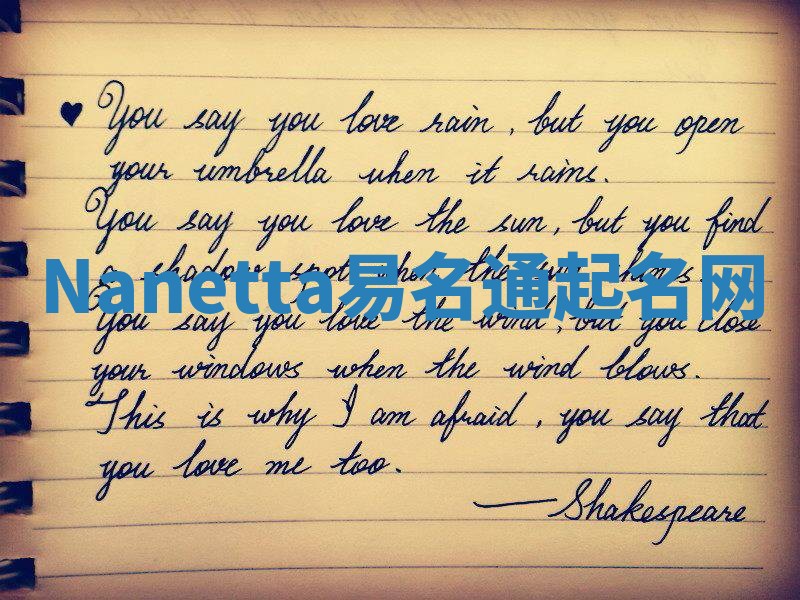 You say you love rain, but you open
your umbrella when it rains.
You say you love the sun, but you find
a shadow spot when the sun shines.
Nanetta易名通起名网
You say you love the wind, but you close
your windows when the wind blows.
This is why I am afraid, you say that
you love me too.
—Shakespeare